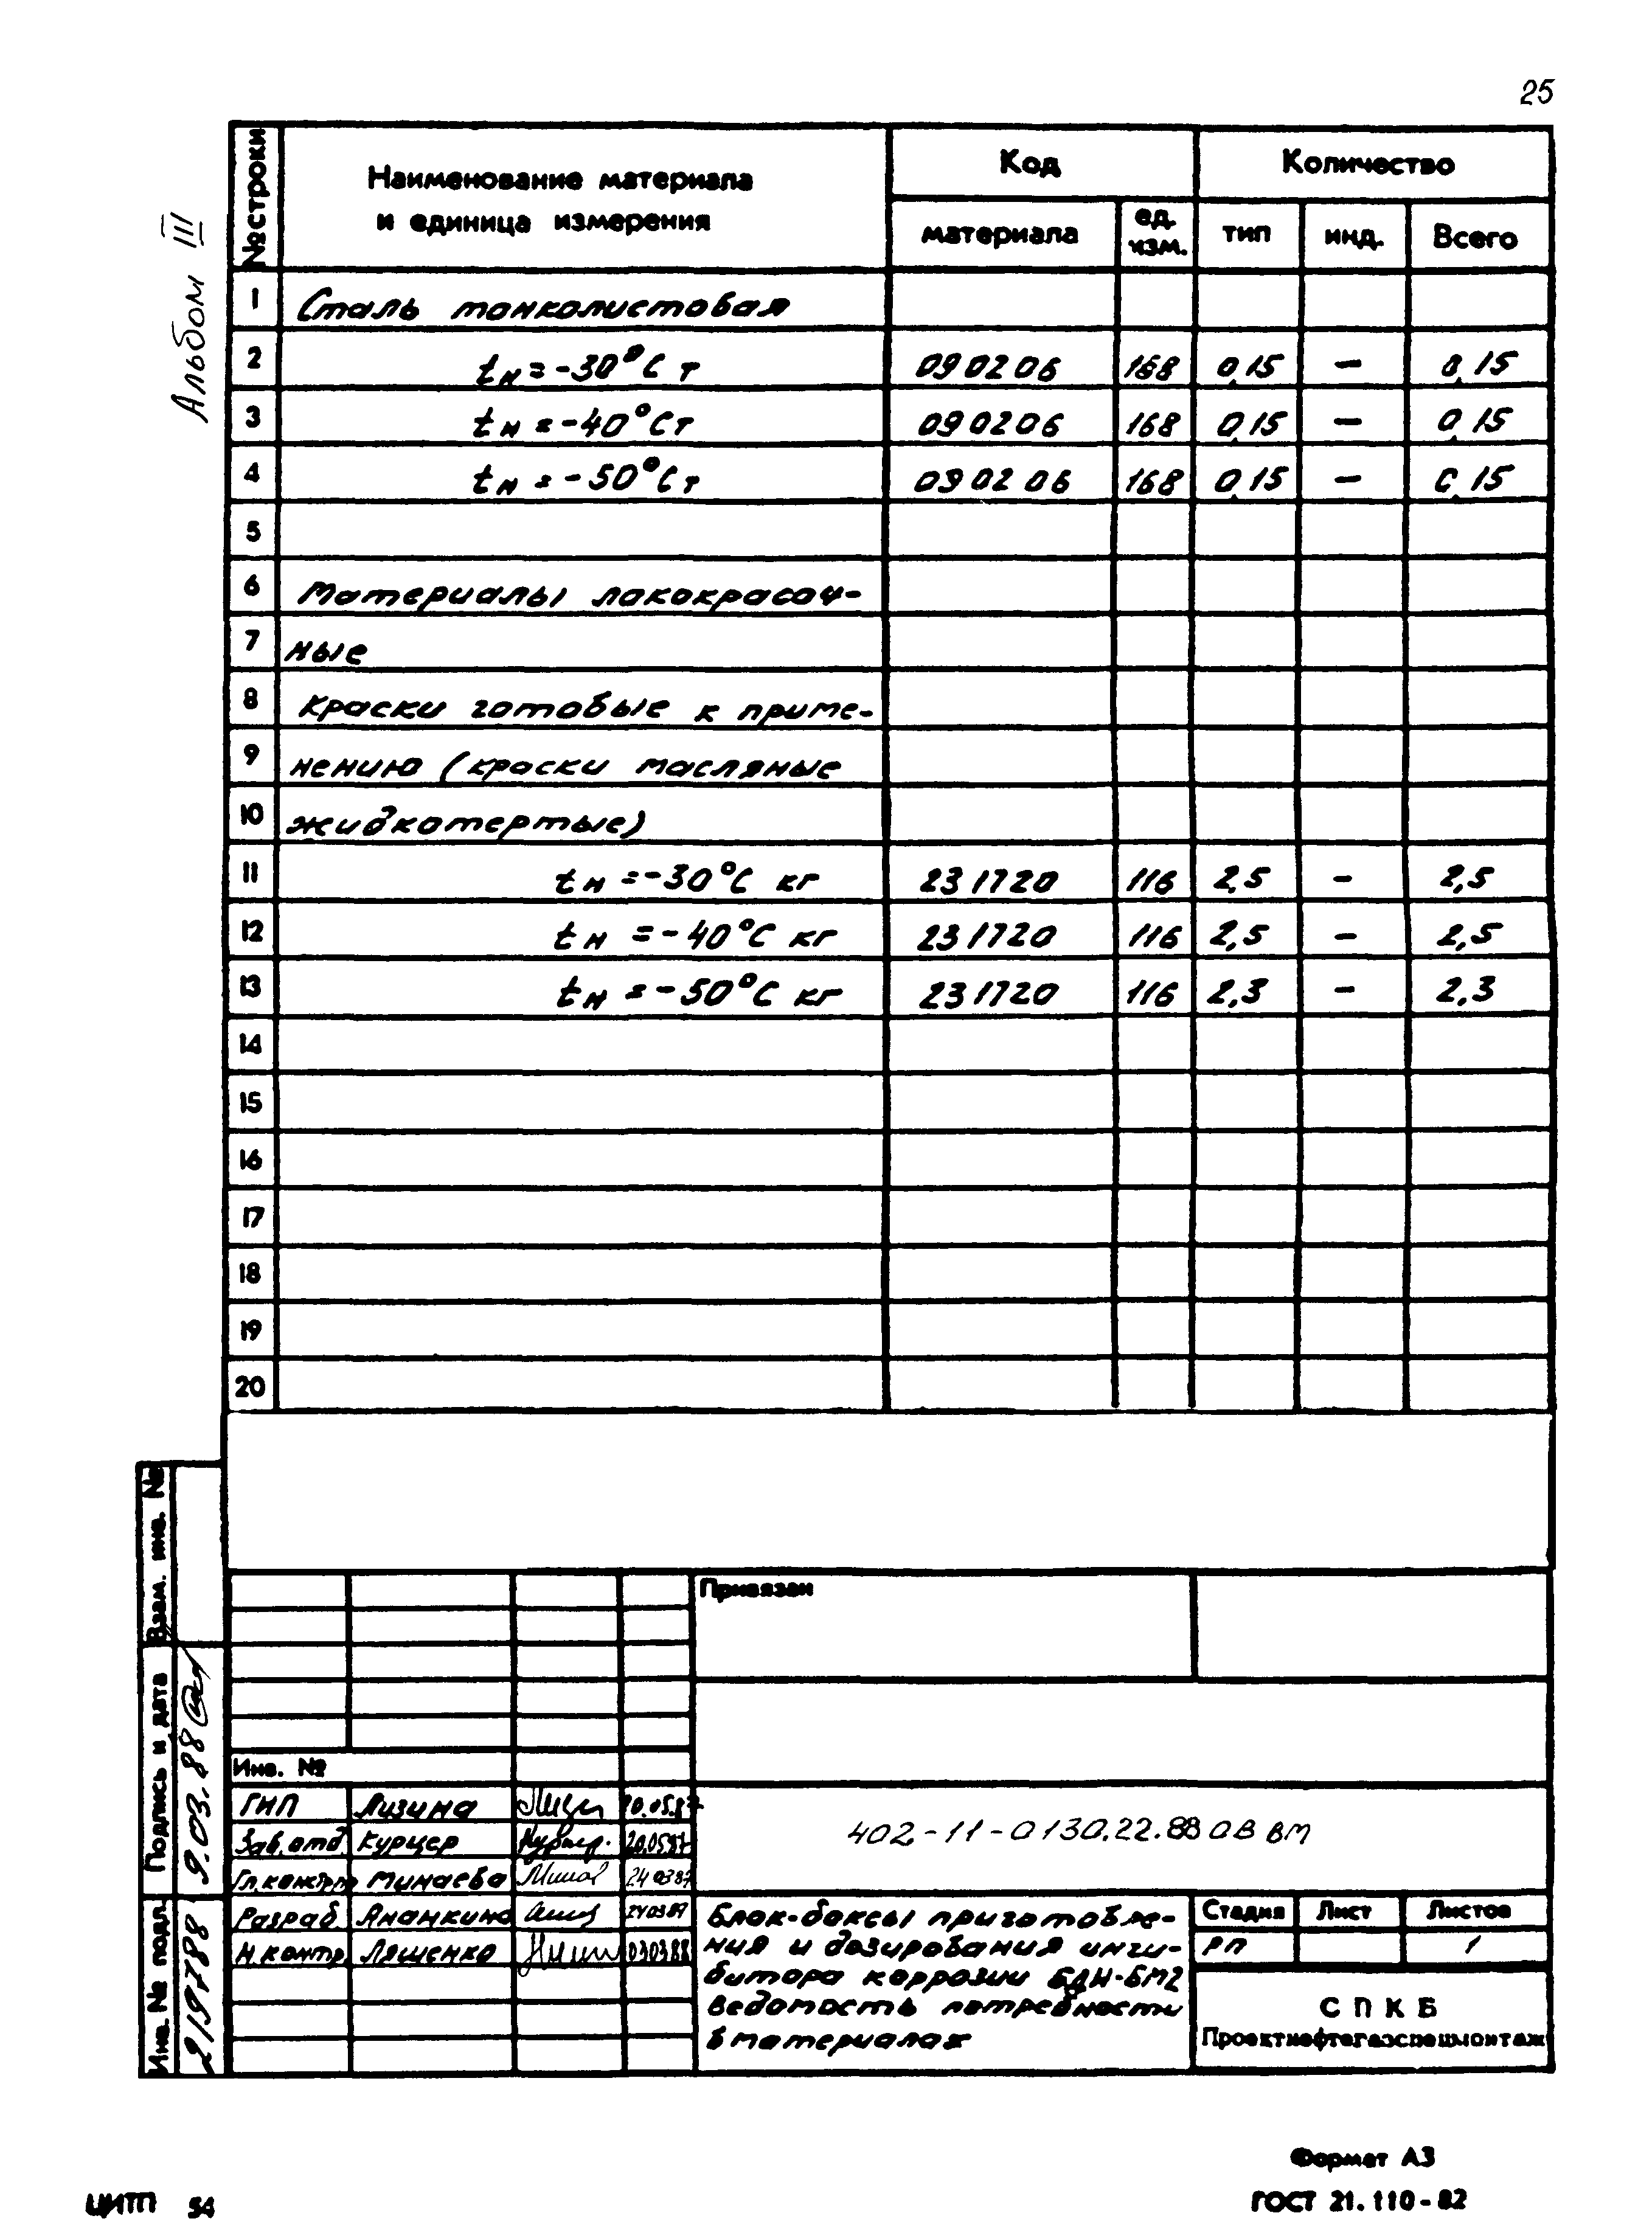 25
Альбом III
№ строки
Наименование материала
и единица измерения
Код
Количество
материала
ед.
изм.
тип
инд.
Всего
1 Сталь тонколистовая
2 tн = -30°С т 090206 168 0,15 — 0,15
3 tн = -40°С т 090206 168 0,15 — 0,15
4 tн = -50°С т 090206 168 0,15 — 0,15
5
6 Материалы лакокрасоч-
7 ные
8 краски готовые к приме-
9 нению (краски масляные
10 жидкотертые)
11 tн = -30°С кг 231720 116 2,5 — 2,5
12 tн = -40°С кг 231720 116 2,5 — 2,5
13 tн = -50°С кг 231720 116 2,3 — 2,3
14
15
16
17
18
19
20
Взам. инв. №
Подпись и дата
9.03.88
Инв. № подл.
219788
Привязан
Инв. №
ГИП Лизина 20.05.87
Зав. отд. Курцер 20.05.87
Гл. констр. Минаева 24.03.87
Разраб. Ананкина 24.03.87
Н. контр. Ляшенко 03.03.88
402-11-0130.22.88 ОВ ВМ
Блок-боксы приготовле-
ния и дозирования инги-
битора коррозии БДИ-БМ2
Ведомость потребности
в материалах
Стадия Лист Листов
РП 1
СПКБ
Проектнефтегазспецмонтаж
Формат А3
ЦИТП 54
ГОСТ 21.110-82